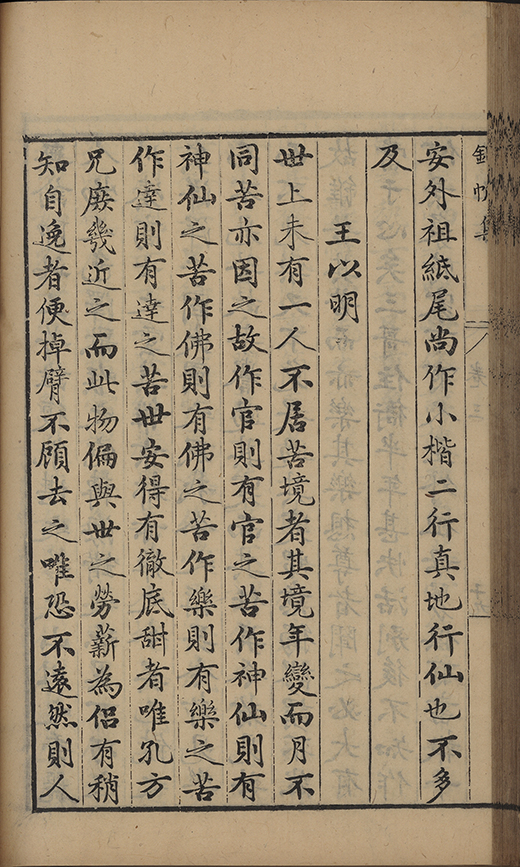 錦帆集
卷三
安外祖紙尾尚作小楷二行真地行仙也不多
及
王以明
世上未有一人不居苦境者其境年變而月不
同苦亦因之故作官則有官之苦作神仙則有
神仙之苦作佛則有佛之苦作樂則有樂之苦
作達則有達之苦世安得有徹底甜者唯孔方
兄庶幾近之而此物偏與世之勞薪為侶有稍
知自逸者便掉臂不顧去之唯恐不遠然則人